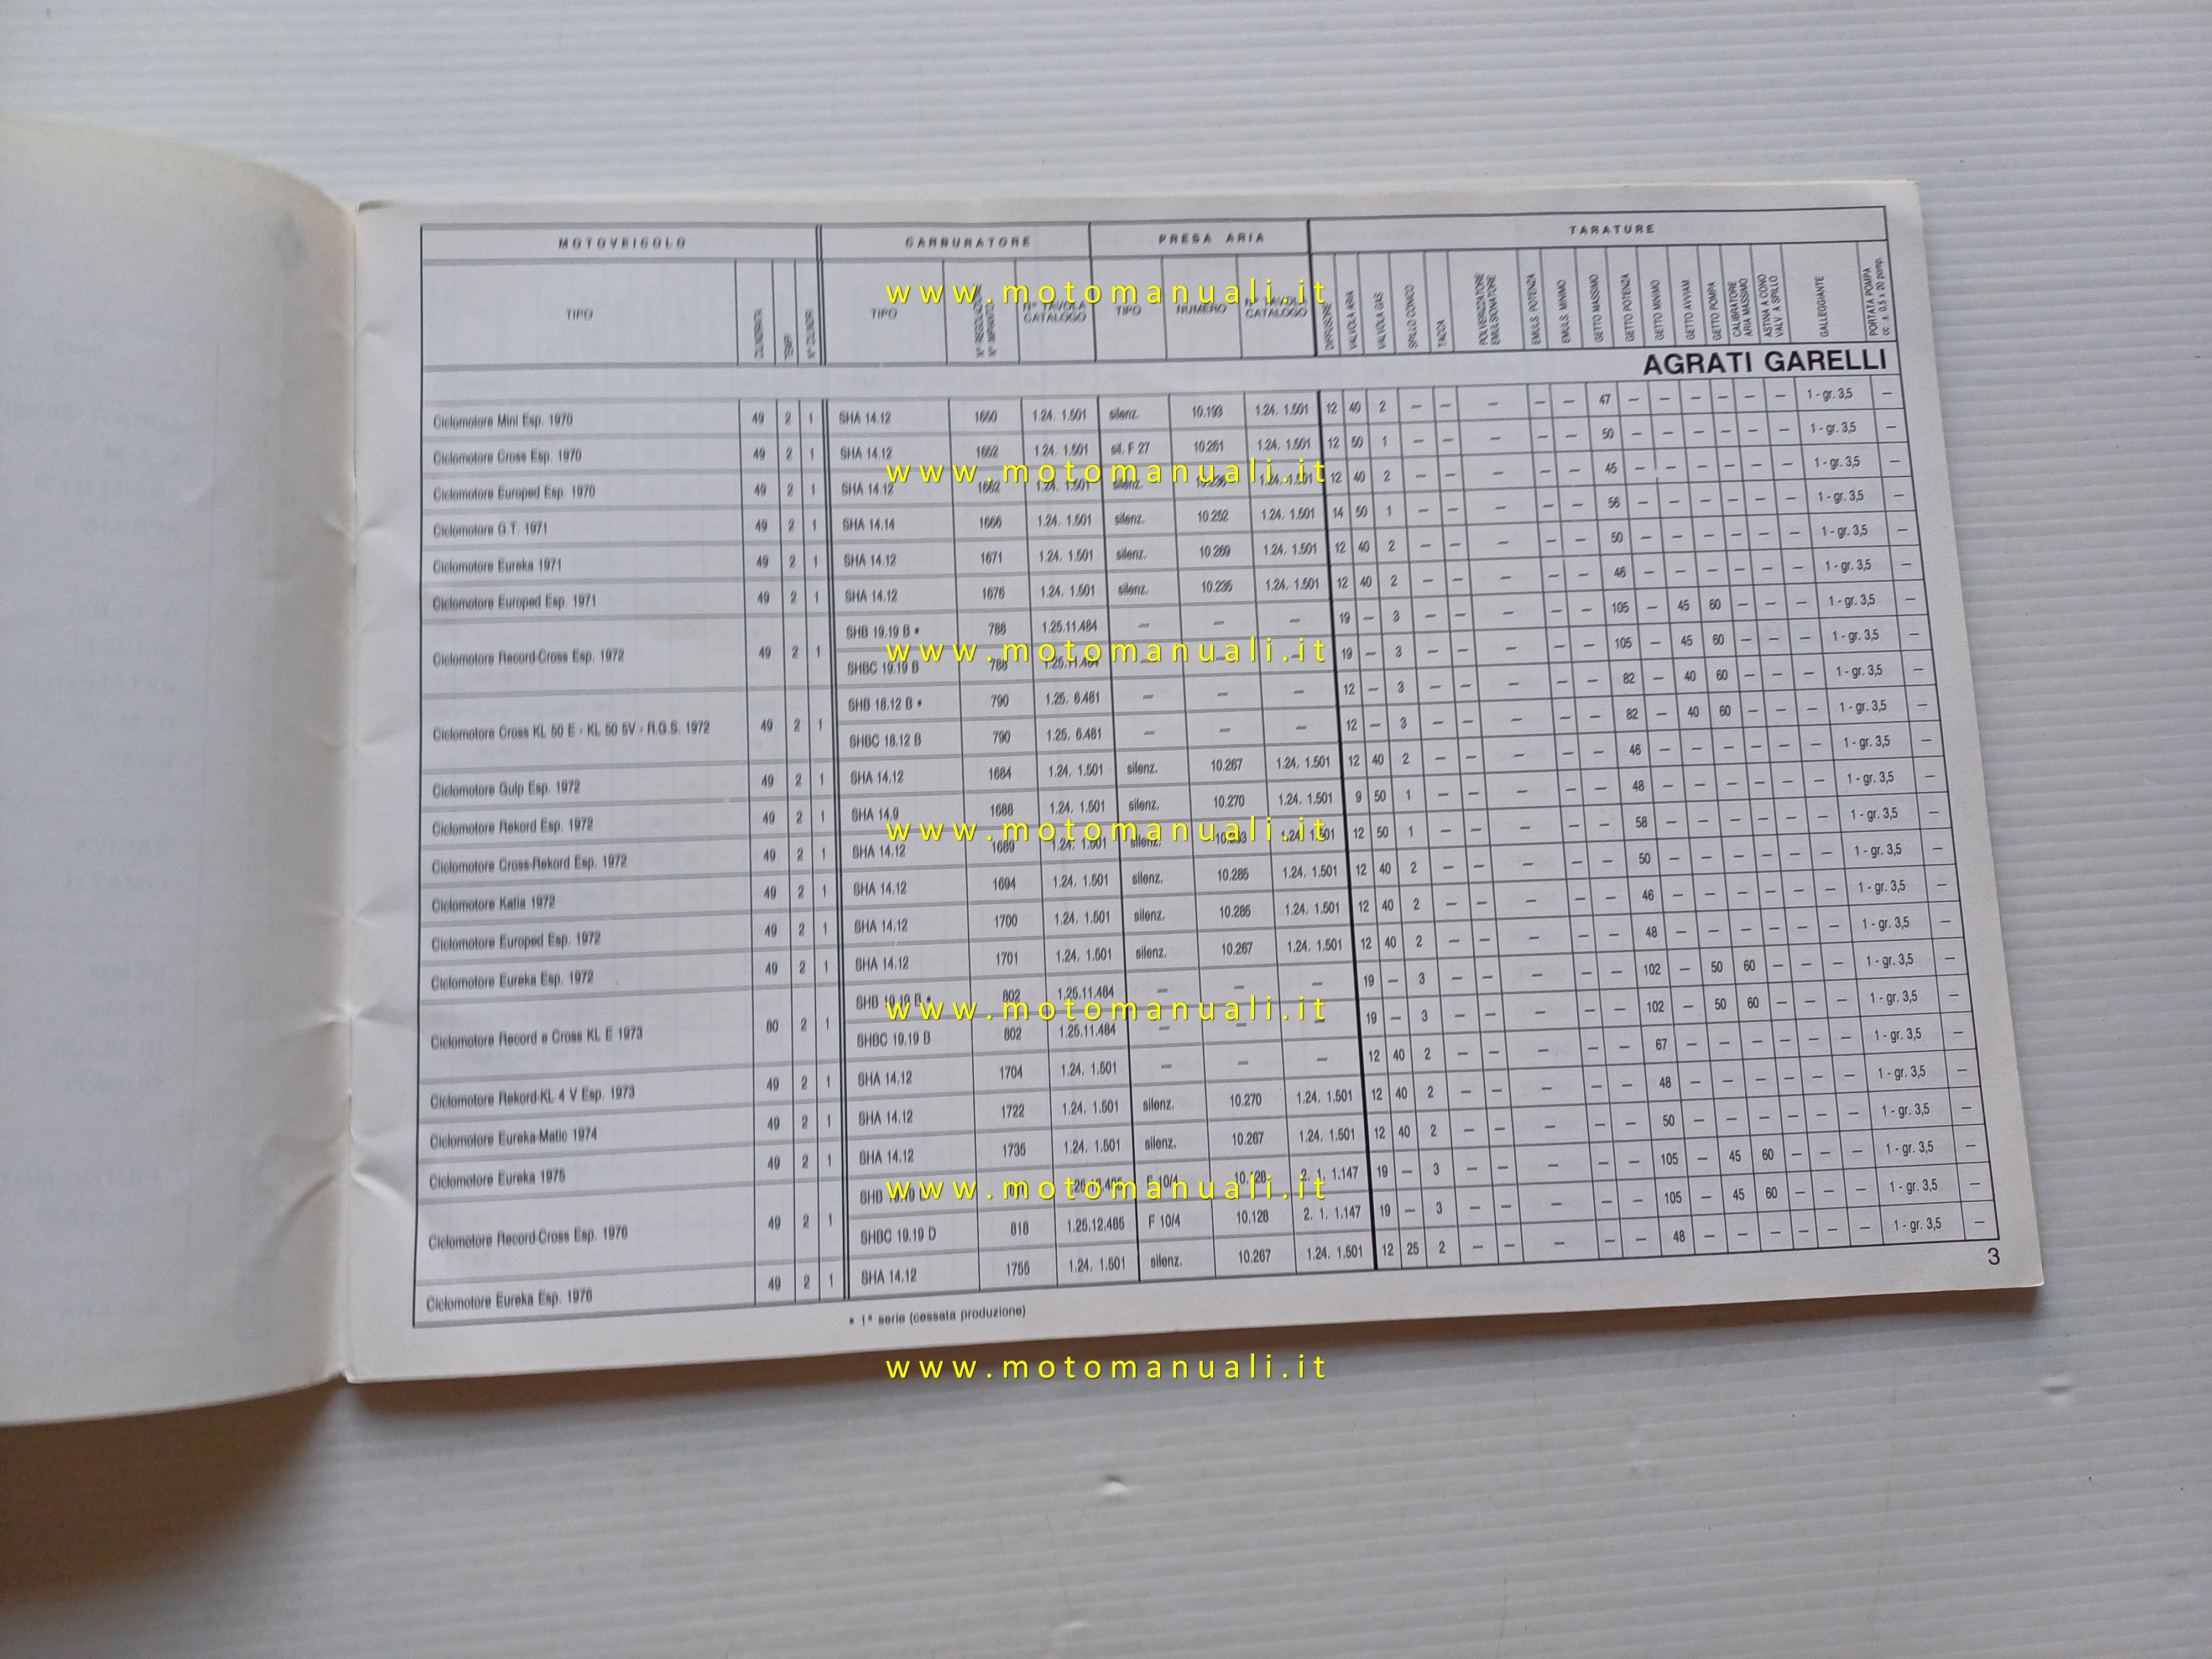 MOTOVEICOLO CARBURATORE PRESA ARIA TARATURE
TIPO CILINDRATA TEMPI N° CILINDRI TIPO N° REGOLAZIONE N° IMPIANTO N° TAVOLA CATALOGO TIPO NUMERO N° TAVOLA CATALOGO DIFFUSORE VALVOLA ARIA VALVOLA GAS SPILLO CONICO TACCA POLVERIZZATORE EMULSIONATORE EMULS. POTENZA EMULS. MINIMO GETTO MASSIMO GETTO POTENZA GETTO MINIMO GETTO AVVIAM. GETTO POMPA CALIBRATORE ARIA MASSIMO ASTINA A CONO VALV. A SPILLO GALLEGGIANTE PORTATA POMPA cc. ± 0,5 x 20 pomp.
AGRATI GARELLI
Ciclomotore Mini Esp. 1970 49 2 1 SHA 14.12 1650 1.24. 1.501 silenz. 10.193 1.24. 1.501 12 40 2 — — — — — 47 — — — — — — 1 - gr. 3,5 —
Ciclomotore Cross Esp. 1970 49 2 1 SHA 14.12 1652 1.24. 1.501 sil. F 27 10.261 1.24. 1.501 12 50 1 — — — — — 50 — — — — — — 1 - gr. 3,5 —
Ciclomotore Europed Esp. 1970 49 2 1 SHA 14.12 1662 1.24. 1.501 silenz. 1.24. 1.501 12 40 2 — — — — — 45 — — — — — — 1 - gr. 3,5 —
Ciclomotore G.T. 1971 49 2 1 SHA 14.14 1666 1.24. 1.501 silenz. 10.252 1.24. 1.501 14 50 1 — — — — — 56 — — — — — — 1 - gr. 3,5 —
Ciclomotore Eureka 1971 49 2 1 SHA 14.12 1671 1.24. 1.501 silenz. 10.269 1.24. 1.501 12 40 2 — — — — — 50 — — — — — — 1 - gr. 3,5 —
Ciclomotore Europed Esp. 1971 49 2 1 SHA 14.12 1676 1.24. 1.501 silenz. 10.235 1.24. 1.501 12 40 2 — — — — — 46 — — — — — — 1 - gr. 3,5 —
Ciclomotore Record-Cross Esp. 1972 49 2 1 SHB 19.19 B * 788 1.25.11.484 — — — 19 — 3 — — — — — 105 — 45 60 — — — 1 - gr. 3,5 —
SHBC 19.19 B 788 1.25.11.484 — — — 19 — 3 — — — — — 105 — 45 60 — — — 1 - gr. 3,5 —
Ciclomotore Cross KL 50 E - KL 50 5V - R.G.S. 1972 49 2 1 SHB 18.12 B * 790 1.25. 6.481 — — — 12 — 3 — — — — — 82 — 40 60 — — — 1 - gr. 3,5 —
SHBC 18.12 B 790 1.25. 6.481 — — — 12 — 3 — — — — — 82 — 40 60 — — — 1 - gr. 3,5 —
Ciclomotore Gulp Esp. 1972 49 2 1 SHA 14.12 1684 1.24. 1.501 silenz. 10.267 1.24. 1.501 12 40 2 — — — — — 46 — — — — — — 1 - gr. 3,5 —
Ciclomotore Rekord Esp. 1972 49 2 1 SHA 14.9 1688 1.24. 1.501 silenz. 10.270 1.24. 1.501 9 50 1 — — — — — 48 — — — — — — 1 - gr. 3,5 —
Ciclomotore Cross-Rekord Esp. 1972 49 2 1 SHA 14.12 1689 1.24. 1.501 silenz. 1.24. 1.501 12 50 1 — — — — — 58 — — — — — — 1 - gr. 3,5 —
Ciclomotore Katia 1972 49 2 1 SHA 14.12 1694 1.24. 1.501 silenz. 10.285 1.24. 1.501 12 40 2 — — — — — 50 — — — — — — 1 - gr. 3,5 —
Ciclomotore Europed Esp. 1972 49 2 1 SHA 14.12 1700 1.24. 1.501 silenz. 10.265 1.24. 1.501 12 40 2 — — — — — 46 — — — — — — 1 - gr. 3,5 —
Ciclomotore Eureka Esp. 1972 49 2 1 SHA 14.12 1701 1.24. 1.501 silenz. 10.267 1.24. 1.501 12 40 2 — — — — — 48 — — — — — — 1 - gr. 3,5 —
Ciclomotore Record e Cross KL E 1973 80 2 1 SHB 19.19 B * 802 1.25.11.484 — — — 19 — 3 — — — — — 102 — 50 60 — — — 1 - gr. 3,5 —
SHBC 19.19 B 802 1.25.11.484 — — — 19 — 3 — — — — — 102 — 50 60 — — — 1 - gr. 3,5 —
Ciclomotore Rekord-KL 4 V Esp. 1973 49 2 1 SHA 14.12 1704 1.24. 1.501 — — — 12 40 2 — — — — — 67 — — — — — — 1 - gr. 3,5 —
Ciclomotore Eureka-Matic 1974 49 2 1 SHA 14.12 1722 1.24. 1.501 silenz. 10.270 1.24. 1.501 12 40 2 — — — — — 48 — — — — — — 1 - gr. 3,5 —
Ciclomotore Eureka 1975 49 2 1 SHA 14.12 1735 1.24. 1.501 silenz. 10.267 1.24. 1.501 12 40 2 — — — — — 50 — — — — — — 1 - gr. 3,5 —
Ciclomotore Record-Cross Esp. 1976 49 2 1 SHB 19.19 F 10/4 10.128 2. 1. 1.147 19 — 3 — — — — — 105 — 45 60 — — — 1 - gr. 3,5 —
SHBC 19.19 D 818 1.25.12.485 F 10/4 10.128 2. 1. 1.147 19 — 3 — — — — — 105 — 45 60 — — — 1 - gr. 3,5 —
Ciclomotore Eureka Esp. 1976 49 2 1 SHA 14.12 1755 1.24. 1.501 silenz. 10.267 1.24. 1.501 12 25 2 — — — — — 48 — — — — — — 1 - gr. 3,5 —
* 1ª serie (cessata produzione)
3
www.motomanuali.it
www.motomanuali.it
www.motomanuali.it
www.motomanuali.it
www.motomanuali.it
www.motomanuali.it
www.motomanuali.it